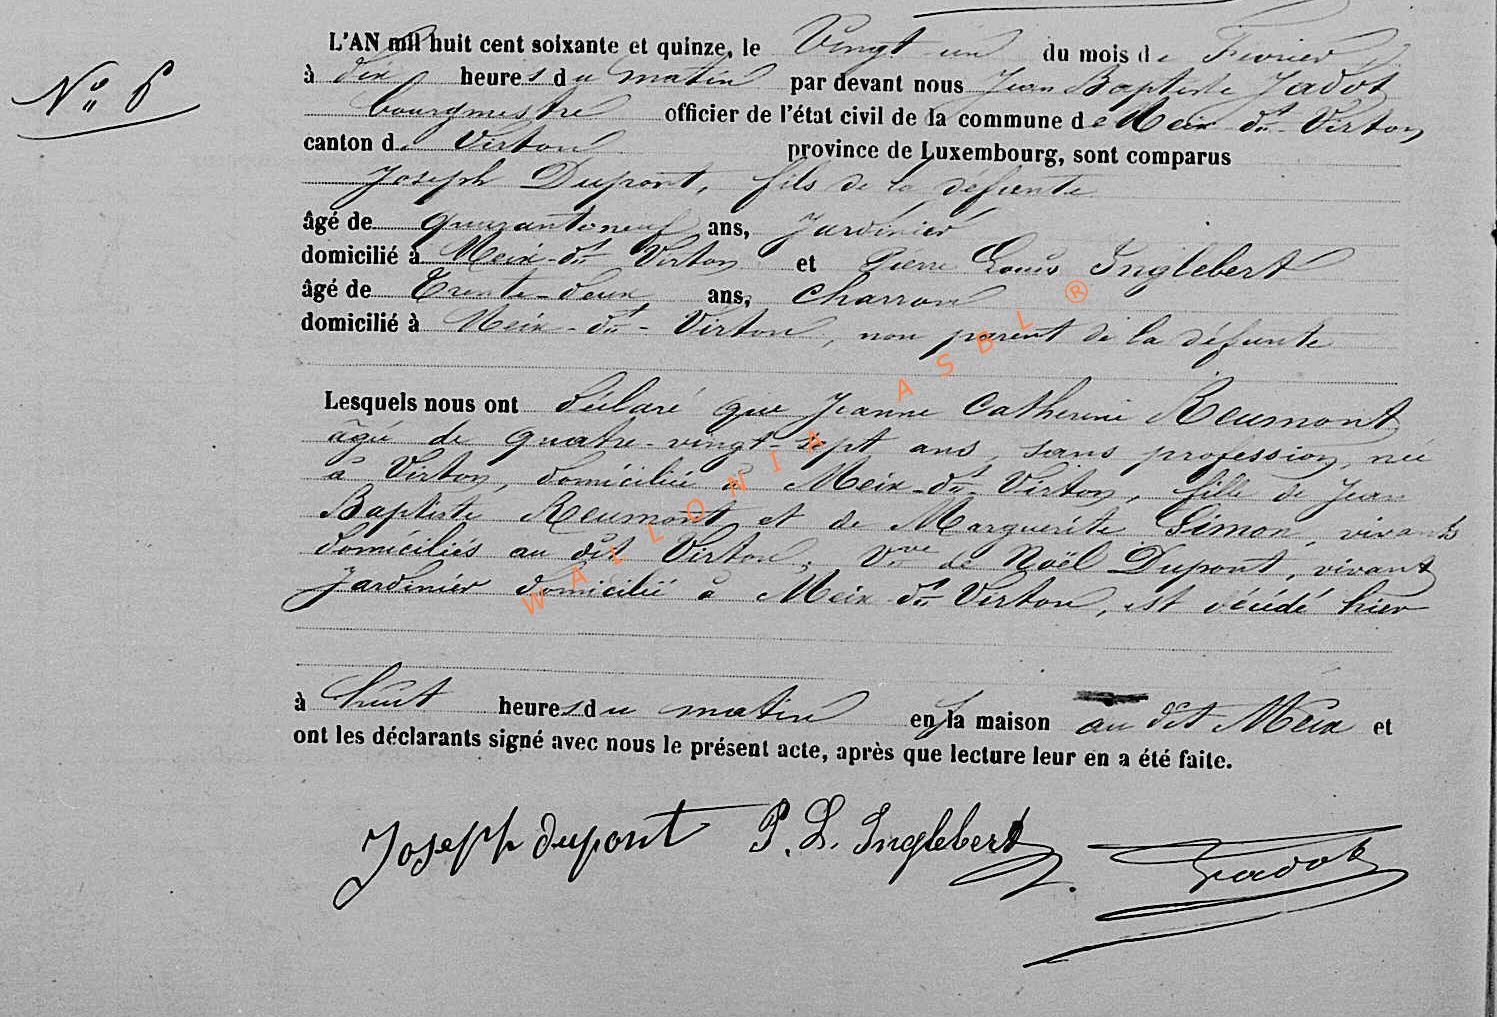 N° 6
L'AN mil huit cent soixante et quinze, le Vingt un du mois de Fevrier
à dix heures du matin par devant nous Jean Baptiste Jadot
bourgmestre officier de l'état civil de la commune de Meix dt Virton
canton de Virton province de Luxembourg, sont comparus
Joseph Dupont, fils de la défunte
âgé de quaranteneuf ans, Jardinier
domicilié à Meix-dt Virton et Pierre Louis Inglebert
âgé de Trente-deux ans, Charron
domicilié à Meix-dt-Virton, non parent de la défunte
Lesquels nous ont déclaré que Jeanne Catherine Reumont
âgée de quatre-vingt-sept ans, sans profession, née
à Virton, domiciliée à Meix-dt-Virton, fille de Jean
Baptiste Reumont et de Marguerite Simon, vivants
domiciliés au dit Virton, Vve de Noël Dupont, vivant
Jardinier domicilié à Meix dt Virton, est décédé hier
à huit heures du matin en la maison au dit Meix et
ont les déclarants signé avec nous le présent acte, après que lecture leur en a été faite.
Joseph dupont P. L. Inglebert Jadot
WALLONIA ASBL ®